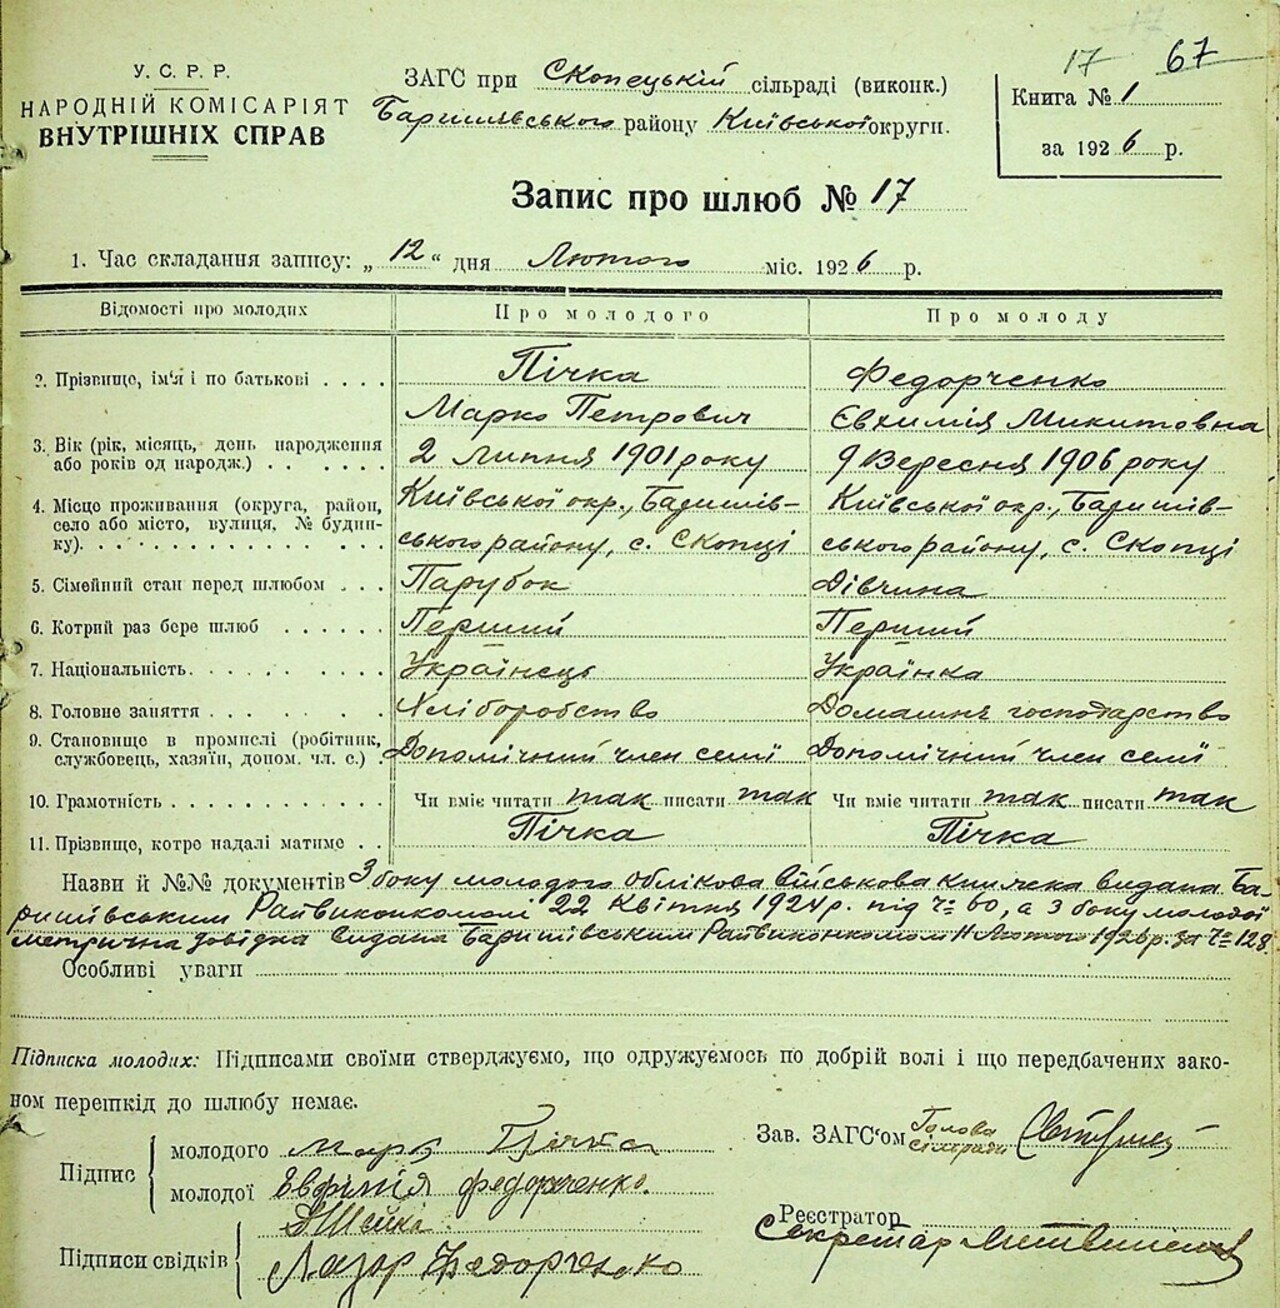 17 67
У. С. Р. Р.
НАРОДНІЙ КОМІСАРІЯТ
ВНУТРІШНІХ СПРАВ
ЗАГС при Скопецькій сільраді (виконк.)
Баришівського району Київської округи.
Книга № 1
за 1926 р.
Запис про шлюб № 17
1. Час складання запису: „12" дня Лютого міс. 1926 р.
Відомості про молодих Про молодого Про молоду
2. Прізвище, ім'я і по батькові . . . . Пічка Федорченко
Марко Петрович Євхимія Микитовна
3. Вік (рік, місяць, день народження або років од народж.) . . . . . . 2 Липня 1901 року 9 Вересня 1906 року
4. Місцо проживання (округа, район, село або місто, вулиця, № будин-ку). . . . . . . . . . . . . . Київської окр., Баришів- Київської окр., Баришів-
ського району, с. Скопці ського району, с. Скопці
5. Сімейний стан перед шлюбом . . . Парубок Дівчина
6. Котрий раз бере шлюб . . . . . . Перший Перший
7. Національність. . . . . . . . . . Українець Українка
8. Головне заняття . . . . . . . . Хліборобство Домашнє господарство
9. Становище в промислі (робітник, службовець, хазяїн, допом. чл. с.) . Допомічний член семії Допомічний член семії
10. Грамотність . . . . . . . . . . . . Чи вміє читати так писати так Чи вміє читати так писати так
11. Прізвище, котре надалі матиме . . Пічка Пічка
Назви й №№ документів З боку молодого облікова військова книжка видана Ба-
ришівським Райвиконкомом 22 Квітня 1924 р. під ч: 60, а з боку молодої
метрична довідка видана Баришівським Райвиконкомом 11 Лютого 1926 р. за ч: 128.
Особливі уваги
Підписка молодих: Підписами своїми стверджуємо, що одружуємось по добрій волі і що передбачених зако-
ном перешкід до шлюбу немає.
Підпис
молодого Марко Пічка
молодої Євфімія Федорченко.
Зав. ЗАГС'ом Голова Сільради
Підписи свідків
Лазор Федорченко
Реєстратор
Секретар